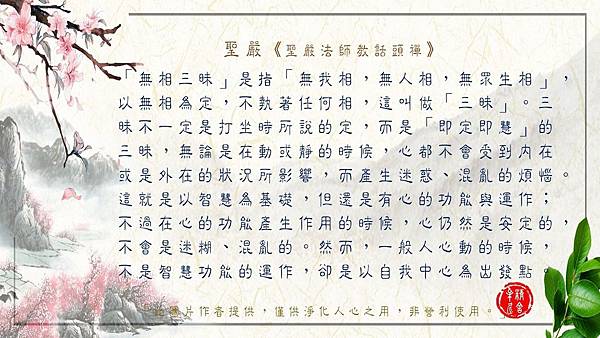 聖嚴《聖嚴法師教話頭禪》
「無相三昧」是指「無我相，無人相，無眾生相」，
以無相為定，不執著任何相，這叫做「三昧」。三
昧不一定是打坐時所說的定，而是「即定即慧」的
三昧，無論是在動或靜的時候，心都不會受到內在
或是外在的狀況所影響，而產生迷惑、混亂的煩惱。
這就是以智慧為基礎，但還是有心的功能與運作；
不過在心的功能產生作用的時候，心仍然是安定的，
不會是迷糊、混亂的。然而，一般人心動的時候，
不是智慧功能的運作，卻是以自我中心為出發點。
圖片作者提供，僅供淨化人心之用，非營利使用。